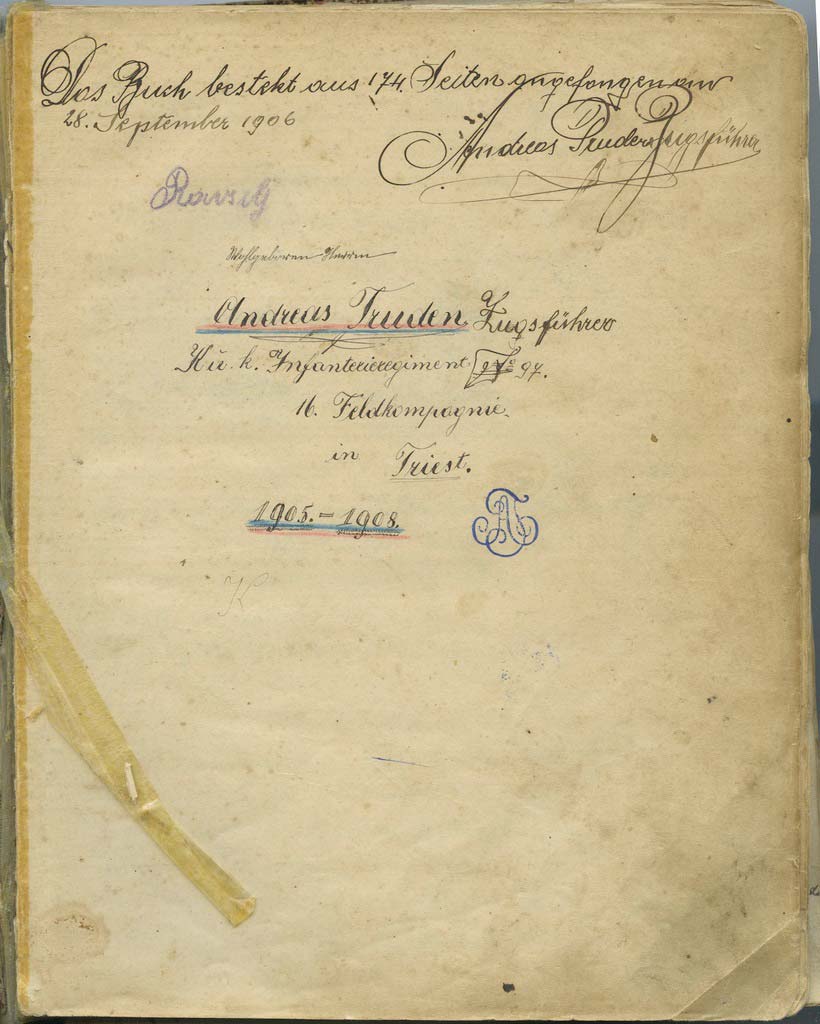 Das Buch besteht aus 174. Seiten angefangen am
28. September 1906
Andreas Truden Zugsführer
Wohlgeboren Herrn
Andreas Truden Zugsführer
K. u. k. Infanterieregiment No 97.
16. Feldkompagnie.
in Triest.
1905. - 1908.
AT
K